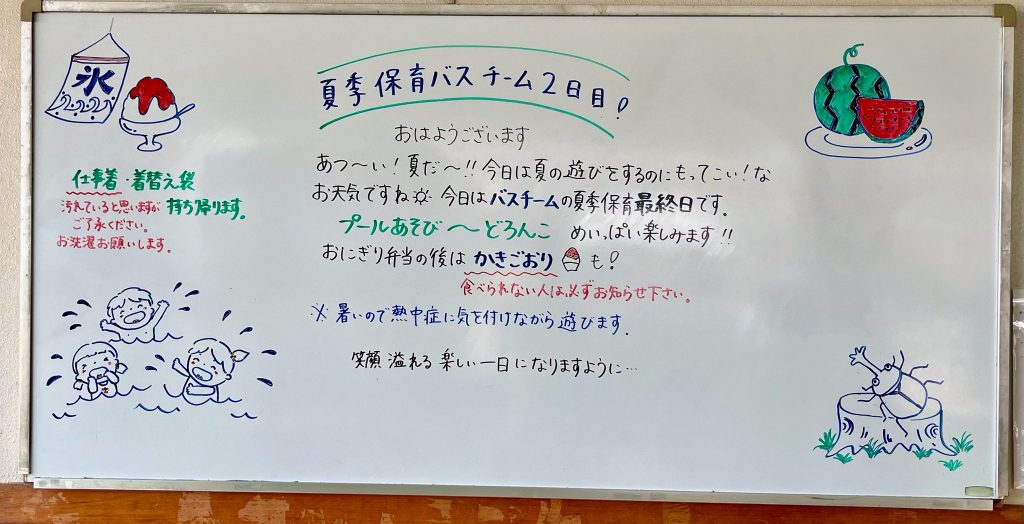 氷
夏季保育バスチーム2日目!
おはようございます
あつ〜い!夏だ〜!!今日は夏の遊びをするのにもってこい!な
お天気ですね☼ 今日はバスチームの夏季保育最終日です。
プールあそび 〜どろんこ めいっぱい楽しみます!!
おにぎり弁当の後は かきごおり も!
食べられない人は、必ずお知らせ下さい。
※暑いので熱中症に気を付けながら遊びます。
笑顔溢れる楽しい一日になりますように…
仕事着・着替え袋
汚れていると思いますが 持ち帰ります。
ご了承ください。
お洗濯お願いします。